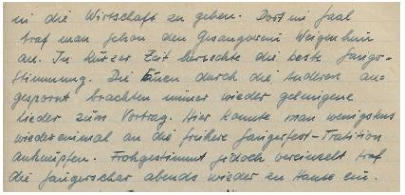 in die Wirtschaft zu gehen. Dort im Saal
traf man schon den Gesangverein
an. In kurzer Zeit herrschte die beste Sänger-
stimmung. Die Einen durch die Anderen an-
gespornt brachten immer wieder gelungene
Lieder zum Vortrag. Hier konnte man wenigstens
wiedereinmal an die frühere Sängerfest-Tratition
anknüpfen. Frohgestimmt jedoch vereinzelt traf
die Sängerschar abends wieder zu Hause ein.